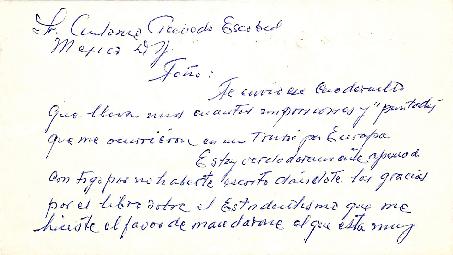 Sr. Antonio Acevedo Escobedo
Mexico D.F.
Toño:
Te envio un cuadernito
que lleva unas cuantas impresiones y "puntadas"
que me ocurrieron en un Tour por Europa
Estoy verdaderamente apenado
contigo por no haberte escrito dándote las gracias
por el libro sobre el Estridentismo que me
hiciste el favor de mandarme el que está muy